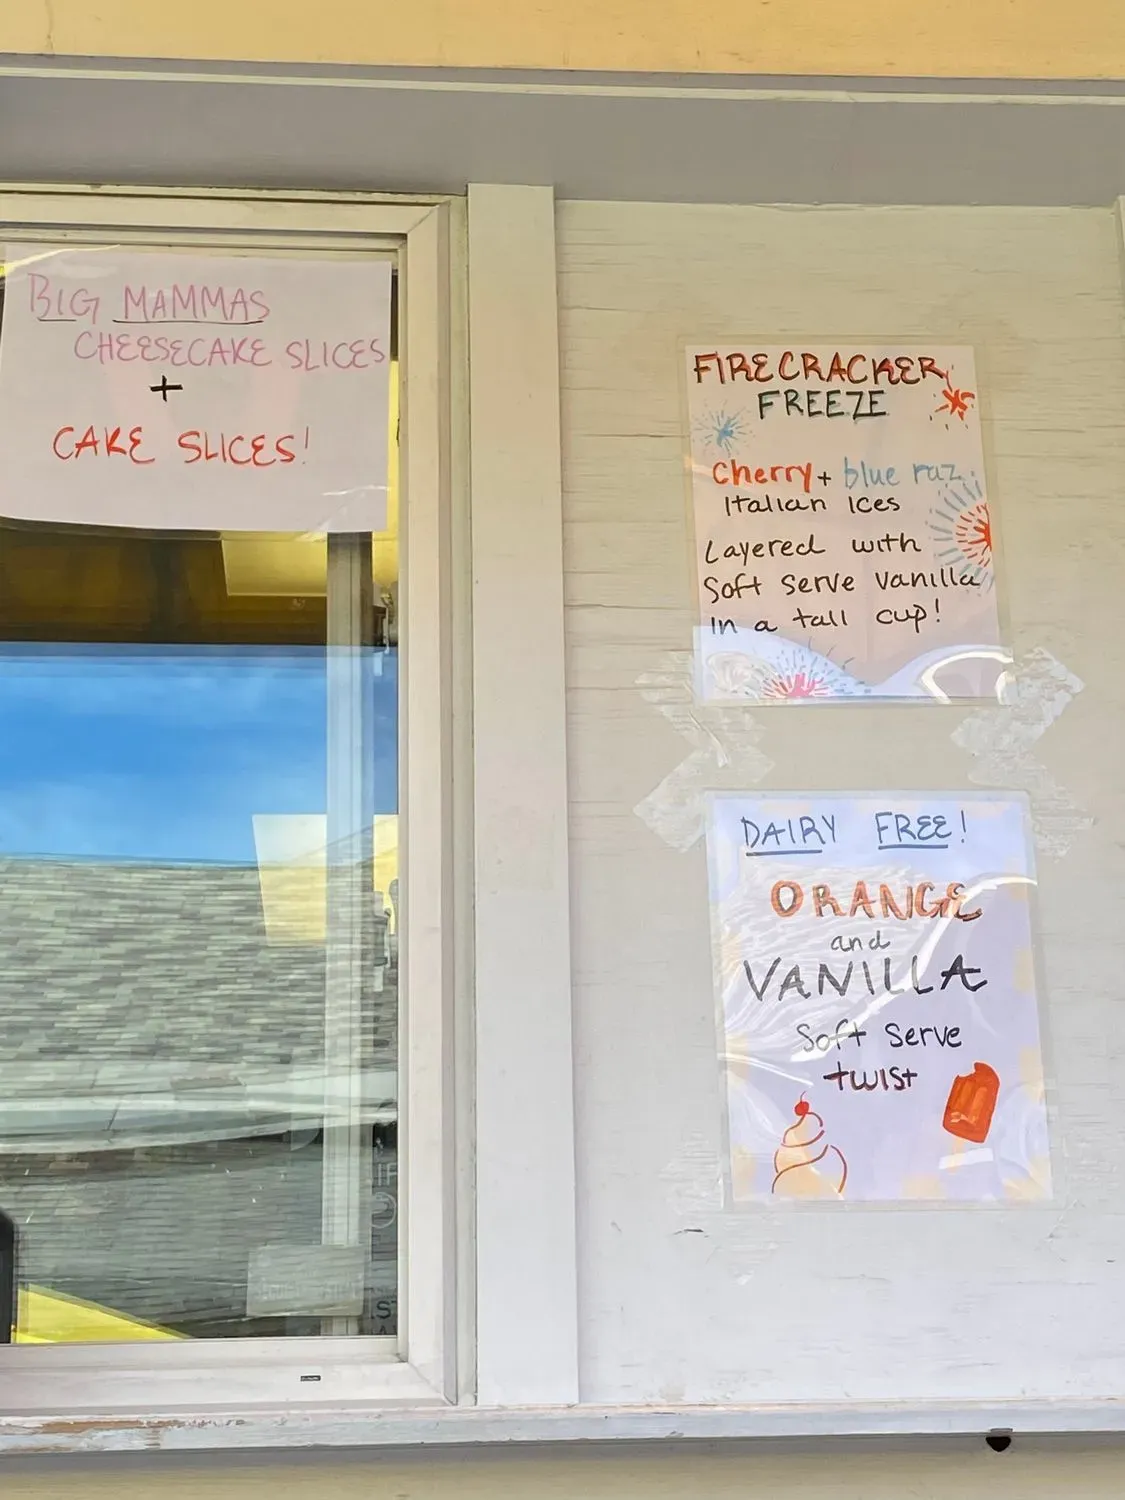 BIG MAMMAS
CHEESECAKE SLICES
+
CAKE SLICES!
FIRECRACKER
FREEZE
Cherry + blue raz
Italian Ices
Layered with
Soft Serve Vanilla
In a tall cup!
DAIRY FREE!
ORANGE
and
VANILLA
Soft Serve
twist